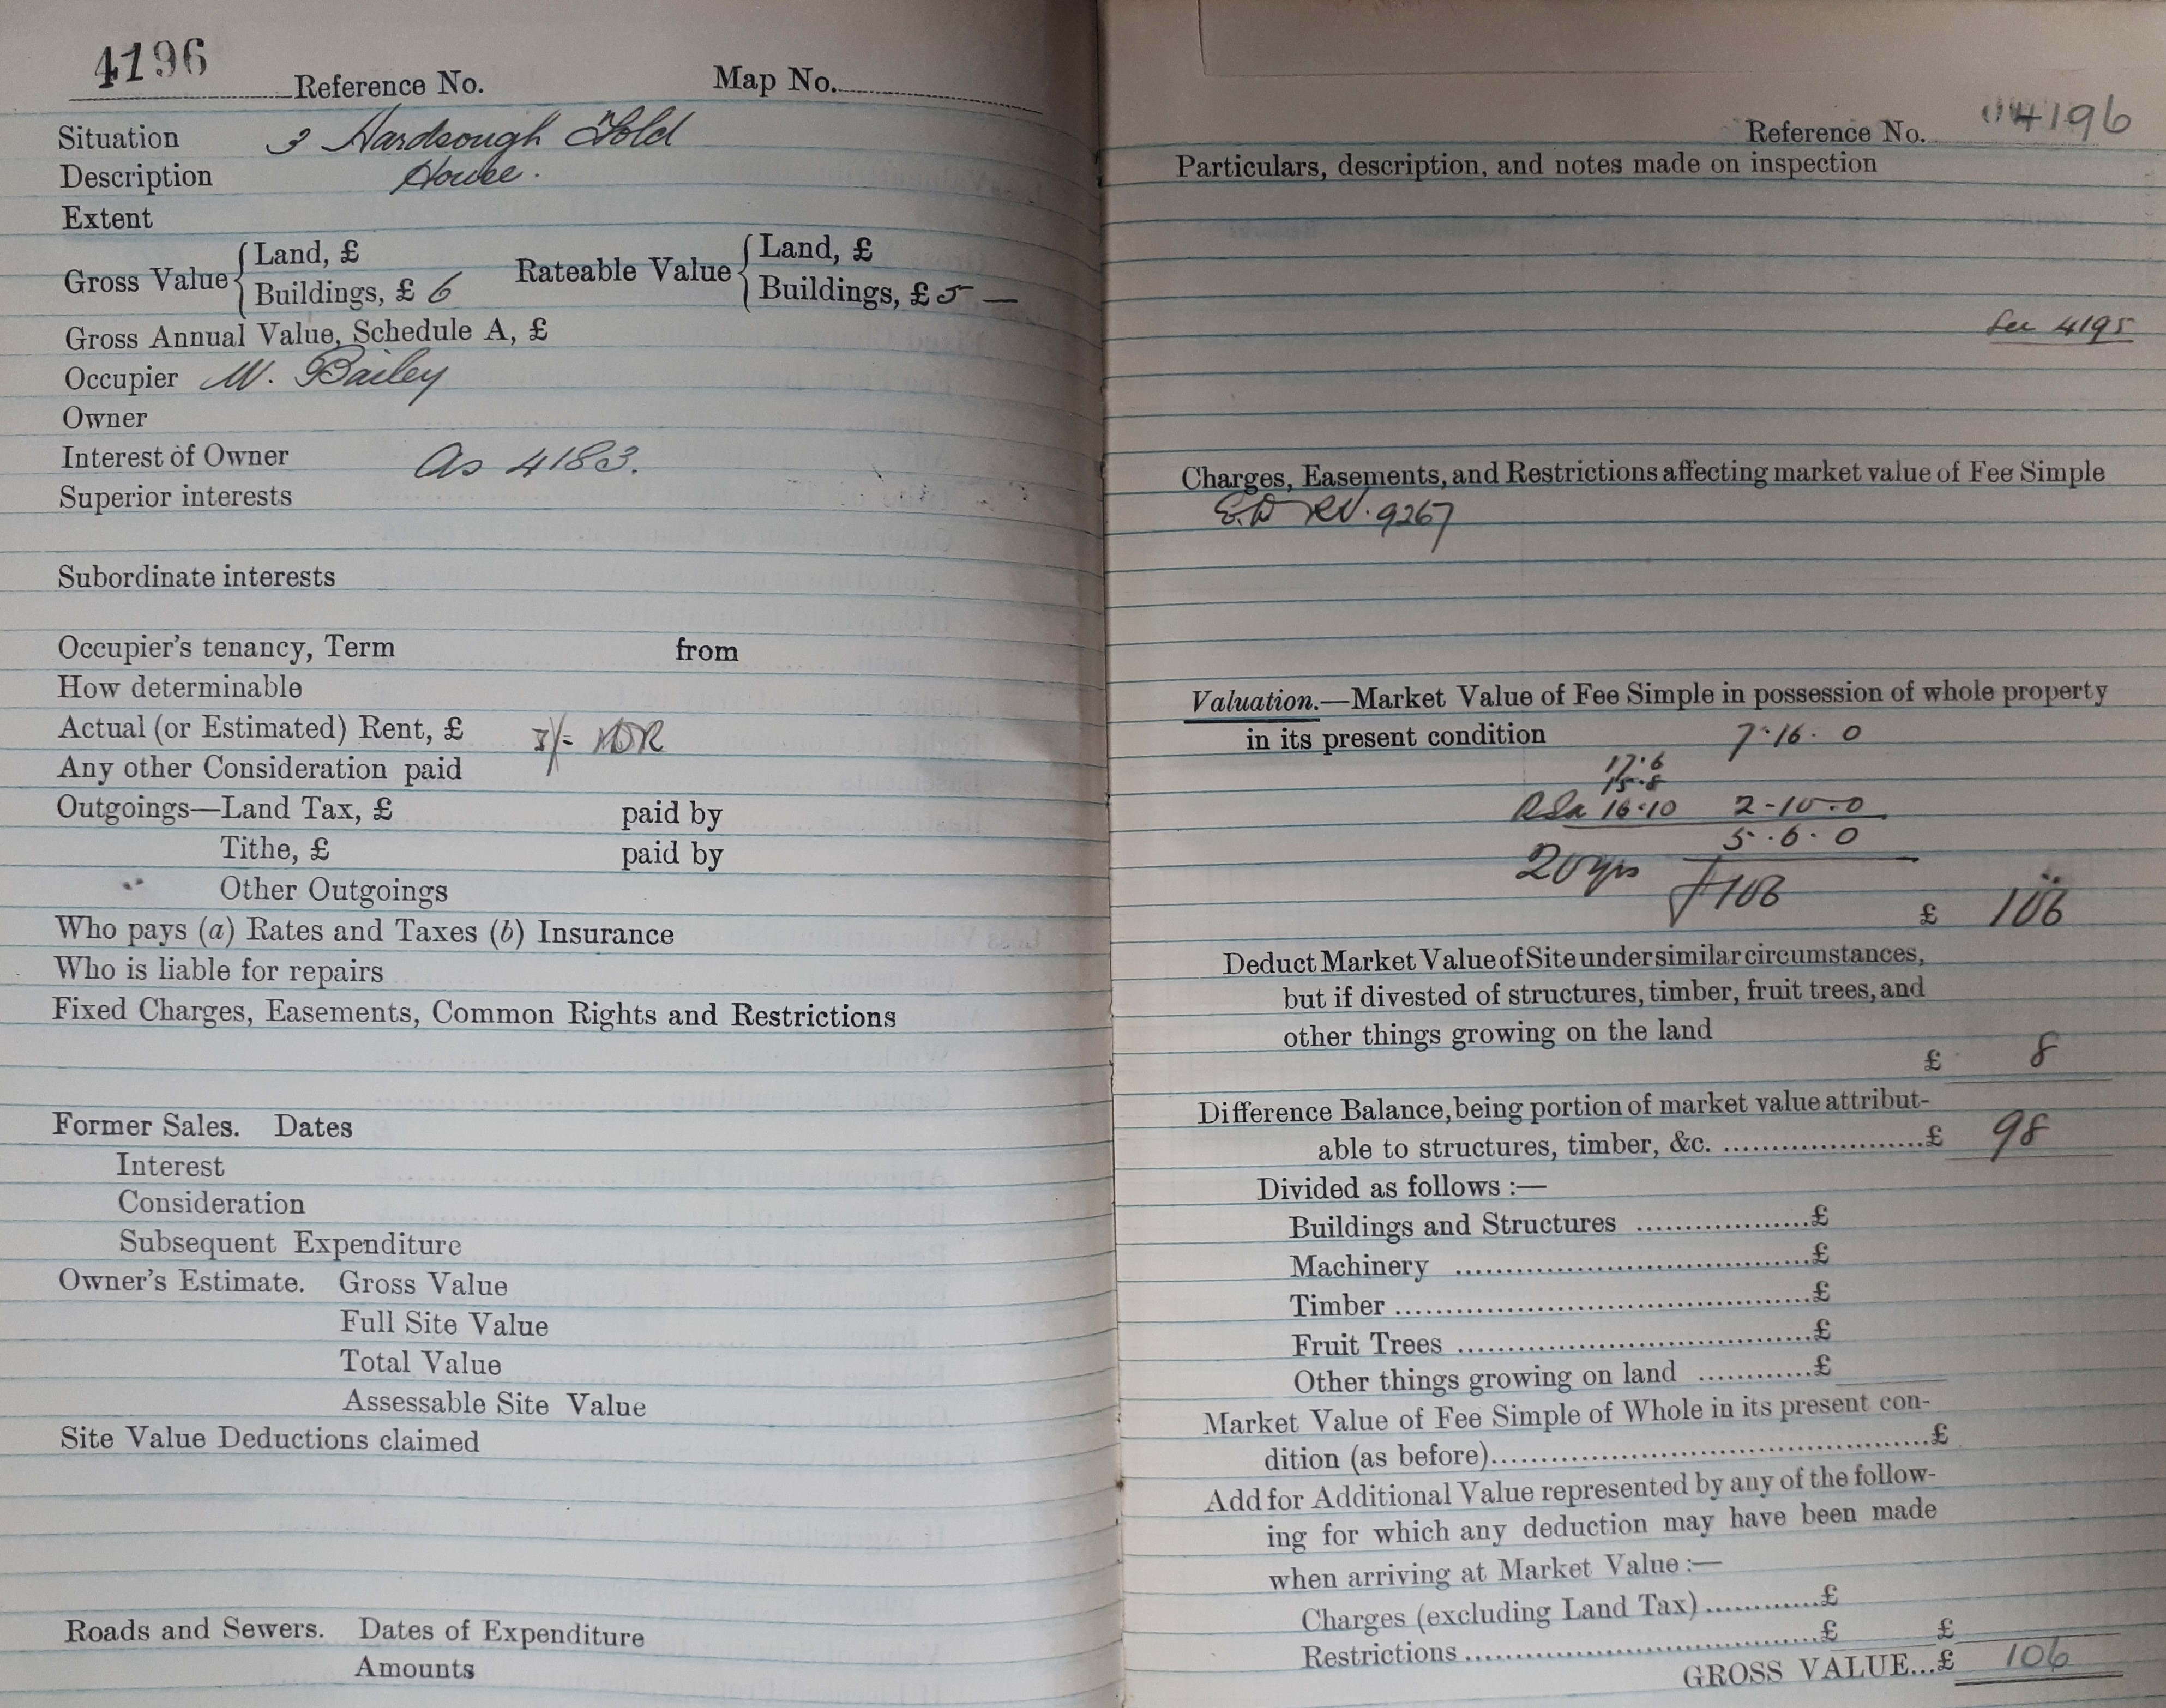 4196 Reference No. Map No.
Situation 3 Hardsough Fold
Description House.
Extent
Gross Value { Land, £ Rateable Value { Land, £
Buildings, £ 6 Buildings, £ 5 —
Gross Annual Value, Schedule A, £
Occupier W. Bailey
Owner
Interest of Owner As 4183.
Superior interests
Subordinate interests
Occupier's tenancy, Term from
How determinable
Actual (or Estimated) Rent, £ 3/-
Any other Consideration paid
Outgoings—Land Tax, £ paid by
Tithe, £ paid by
Other Outgoings
Who pays (a) Rates and Taxes (b) Insurance
Who is liable for repairs
Fixed Charges, Easements, Common Rights and Restrictions
Former Sales. Dates
Interest
Consideration
Subsequent Expenditure
Owner's Estimate. Gross Value
Full Site Value
Total Value
Assessable Site Value
Site Value Deductions claimed
Roads and Sewers. Dates of Expenditure
Amounts
Reference No. 4196
Particulars, description, and notes made on inspection
See 4195
Charges, Easements, and Restrictions affecting market value of Fee Simple
9267
Valuation.—Market Value of Fee Simple in possession of whole property
in its present condition 7·16·0
17·6
15·8
16·10 2-10-0
5·6·0
20 yrs 106
£ 106
Deduct Market Value of Site under similar circumstances,
but if divested of structures, timber, fruit trees, and
other things growing on the land
£ 8
Difference Balance, being portion of market value attribut-
able to structures, timber, &c. ....................£ 98
Divided as follows :—
Buildings and Structures ..................£
Machinery ......................................£
Timber ...........................................£
Fruit Trees .....................................£
Other things growing on land ............£
Market Value of Fee Simple of Whole in its present con-
dition (as before)...............................................£
Add for Additional Value represented by any of the follow-
ing for which any deduction may have been made
when arriving at Market Value :—
Charges (excluding Land Tax) ............£
Restrictions .....................................£ £
GROSS VALUE...£ 106